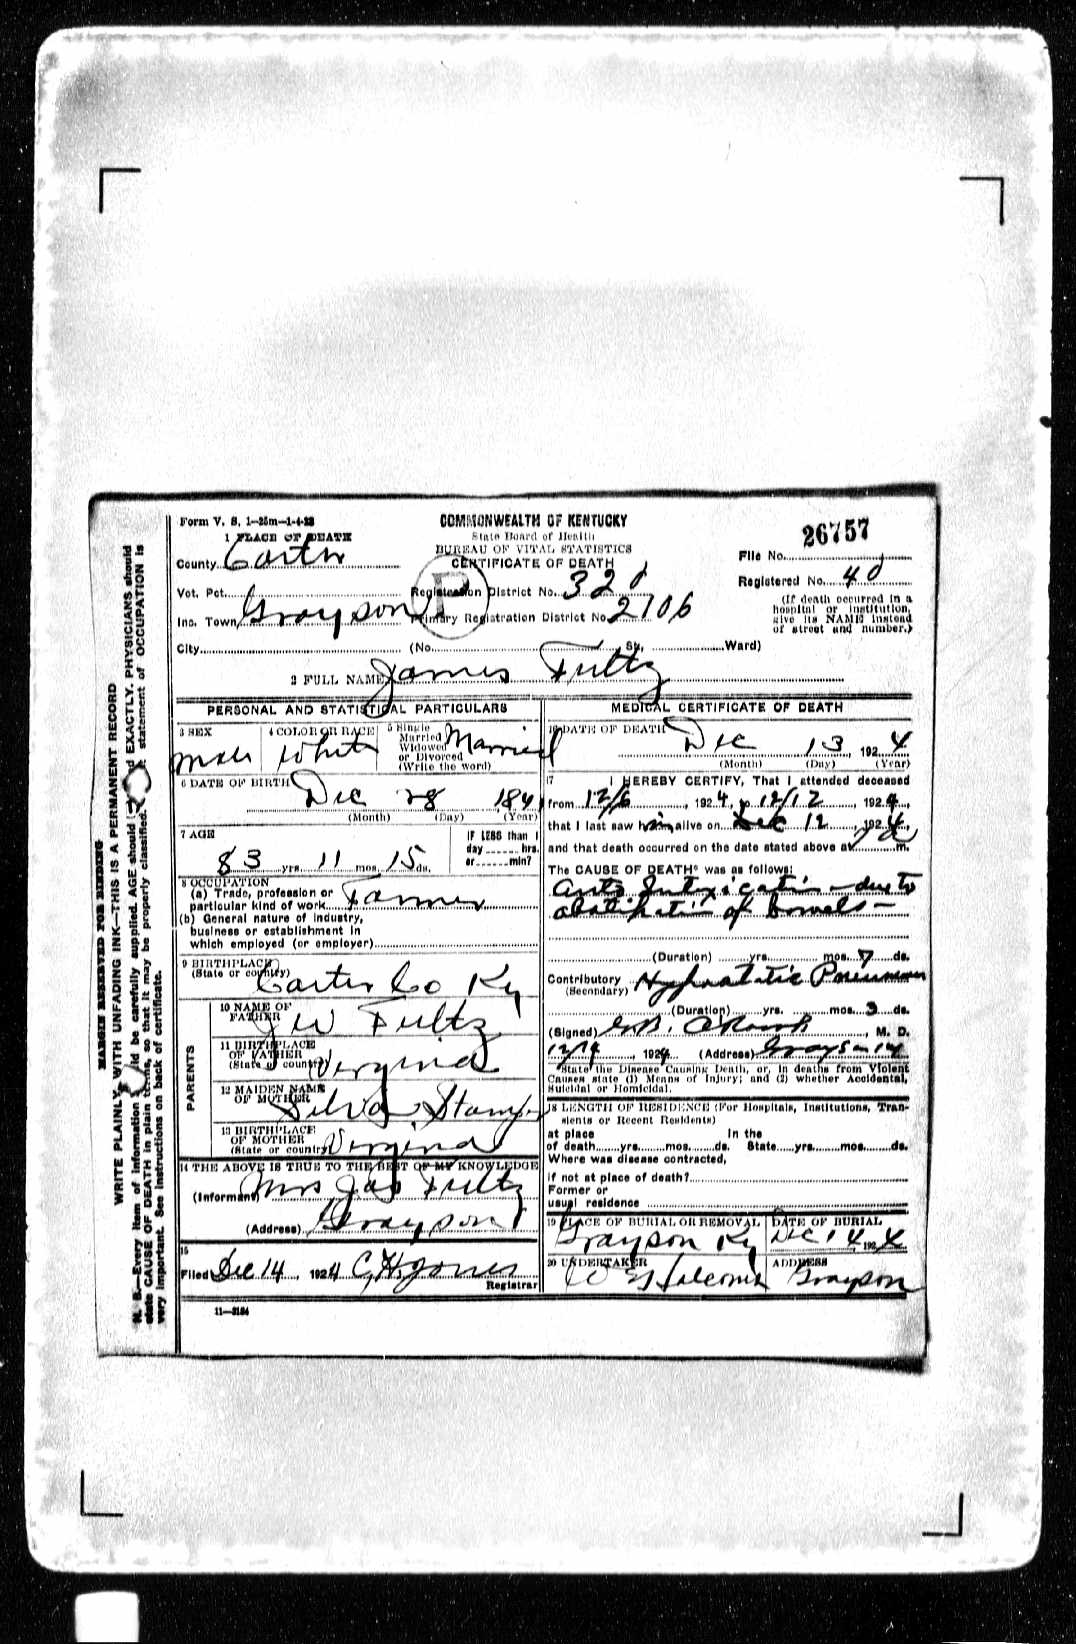 Form V. S. 1-25m-1-4-23
COMMONWEALTH OF KENTUCKY
State Board of Health
BUREAU OF VITAL STATISTICS
CERTIFICATE OF DEATH
26757
File No.
Registered No. 40
(If death occurred in a hospital or institution, give its NAME instead of street and number.)
1 PLACE OF DEATH
County Carter
Vot. Pct.
Registration District No. 320
Inc. Town Grayson
Primary Registration District No. 2106
City (No. St., Ward)
2 FULL NAME James Fultz
PERSONAL AND STATISTICAL PARTICULARS
3 SEX
Male
4 COLOR OR RACE
White
5 Single Married Widowed or Divorced (Write the word)
Married
6 DATE OF BIRTH Dec 28, 184
(Month) (Day) (Year)
7 AGE
83 yrs. 11 mos. 15 ds.
IF LESS than 1 day hrs. or min?
8 OCCUPATION
(a) Trade, profession or particular kind of work Farmer
(b) General nature of industry, business or establishment in which employed (or employer)
9 BIRTHPLACE
(State or country) Carter Co Ky
PARENTS
10 NAME OF FATHER J W Fultz
11 BIRTHPLACE OF FATHER (State or country) Virginia
12 MAIDEN NAME OF MOTHER Stamper
13 BIRTHPLACE OF MOTHER (State or country) Virginia
14 THE ABOVE IS TRUE TO THE BEST OF MY KNOWLEDGE
(Informant) Mrs Jas Fultz
(Address) Grayson
15
Filed Dec 14, 1924 Jones
Registrar
11-3184
MEDICAL CERTIFICATE OF DEATH
16 DATE OF DEATH Dec 13, 1924
(Month) (Day) (Year)
17 I HEREBY CERTIFY, That I attended deceased
from 12/6, 1924, to 12/12, 1924,
that I last saw him alive on Dec 12, 1924,
and that death occurred on the date stated above at 7 a m.
The CAUSE OF DEATH* was as follows:
Auto Intoxication - due to
obstipation of bowels -
(Duration) yrs. mos. 7 ds.
Contributory Hypostatic Pneumonia
(Secondary)
(Duration) yrs. mos. 3 ds.
(Signed) , M. D.
12/14, 1924 (Address) Grayson Ky
*State the Disease Causing Death, or, in deaths from Violent Causes state (1) Means of Injury; and (2) whether Accidental, Suicidal or Homicidal.
18 LENGTH OF RESIDENCE (For Hospitals, Institutions, Transients or Recent Residents)
at place In the
of death yrs. mos. ds. State yrs. mos. ds.
Where was disease contracted,
if not at place of death?
Former or
usual residence
19 PLACE OF BURIAL OR REMOVAL
Grayson Ky
DATE OF BURIAL
Dec 14, 1924
20 UNDERTAKER
ADDRESS
Grayson
MARGIN RESERVED FOR BINDING
WRITE PLAINLY, WITH UNFADING INK—THIS IS A PERMANENT RECORD
N. B.—Every item of information should be carefully supplied. AGE should EXACTLY. PHYSICIANS should
state CAUSE OF DEATH in plain terms, so that it may be properly classified. statement of OCCUPATION is
very important. See instructions on back of certificate.